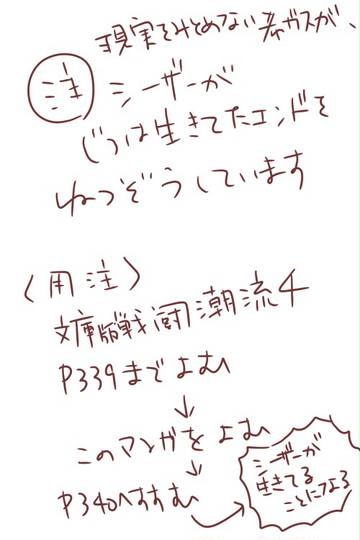 現実をみとめない者ガスが、
注 シーザーが
じつは生きてたエンドを
ねつぞうしています
〈用注〉
文庫版戦闘潮流4
P339までよむ
↓
このマンガをよむ
↓
P340へすすむ
→
シーザーが
生きてる
ことになる